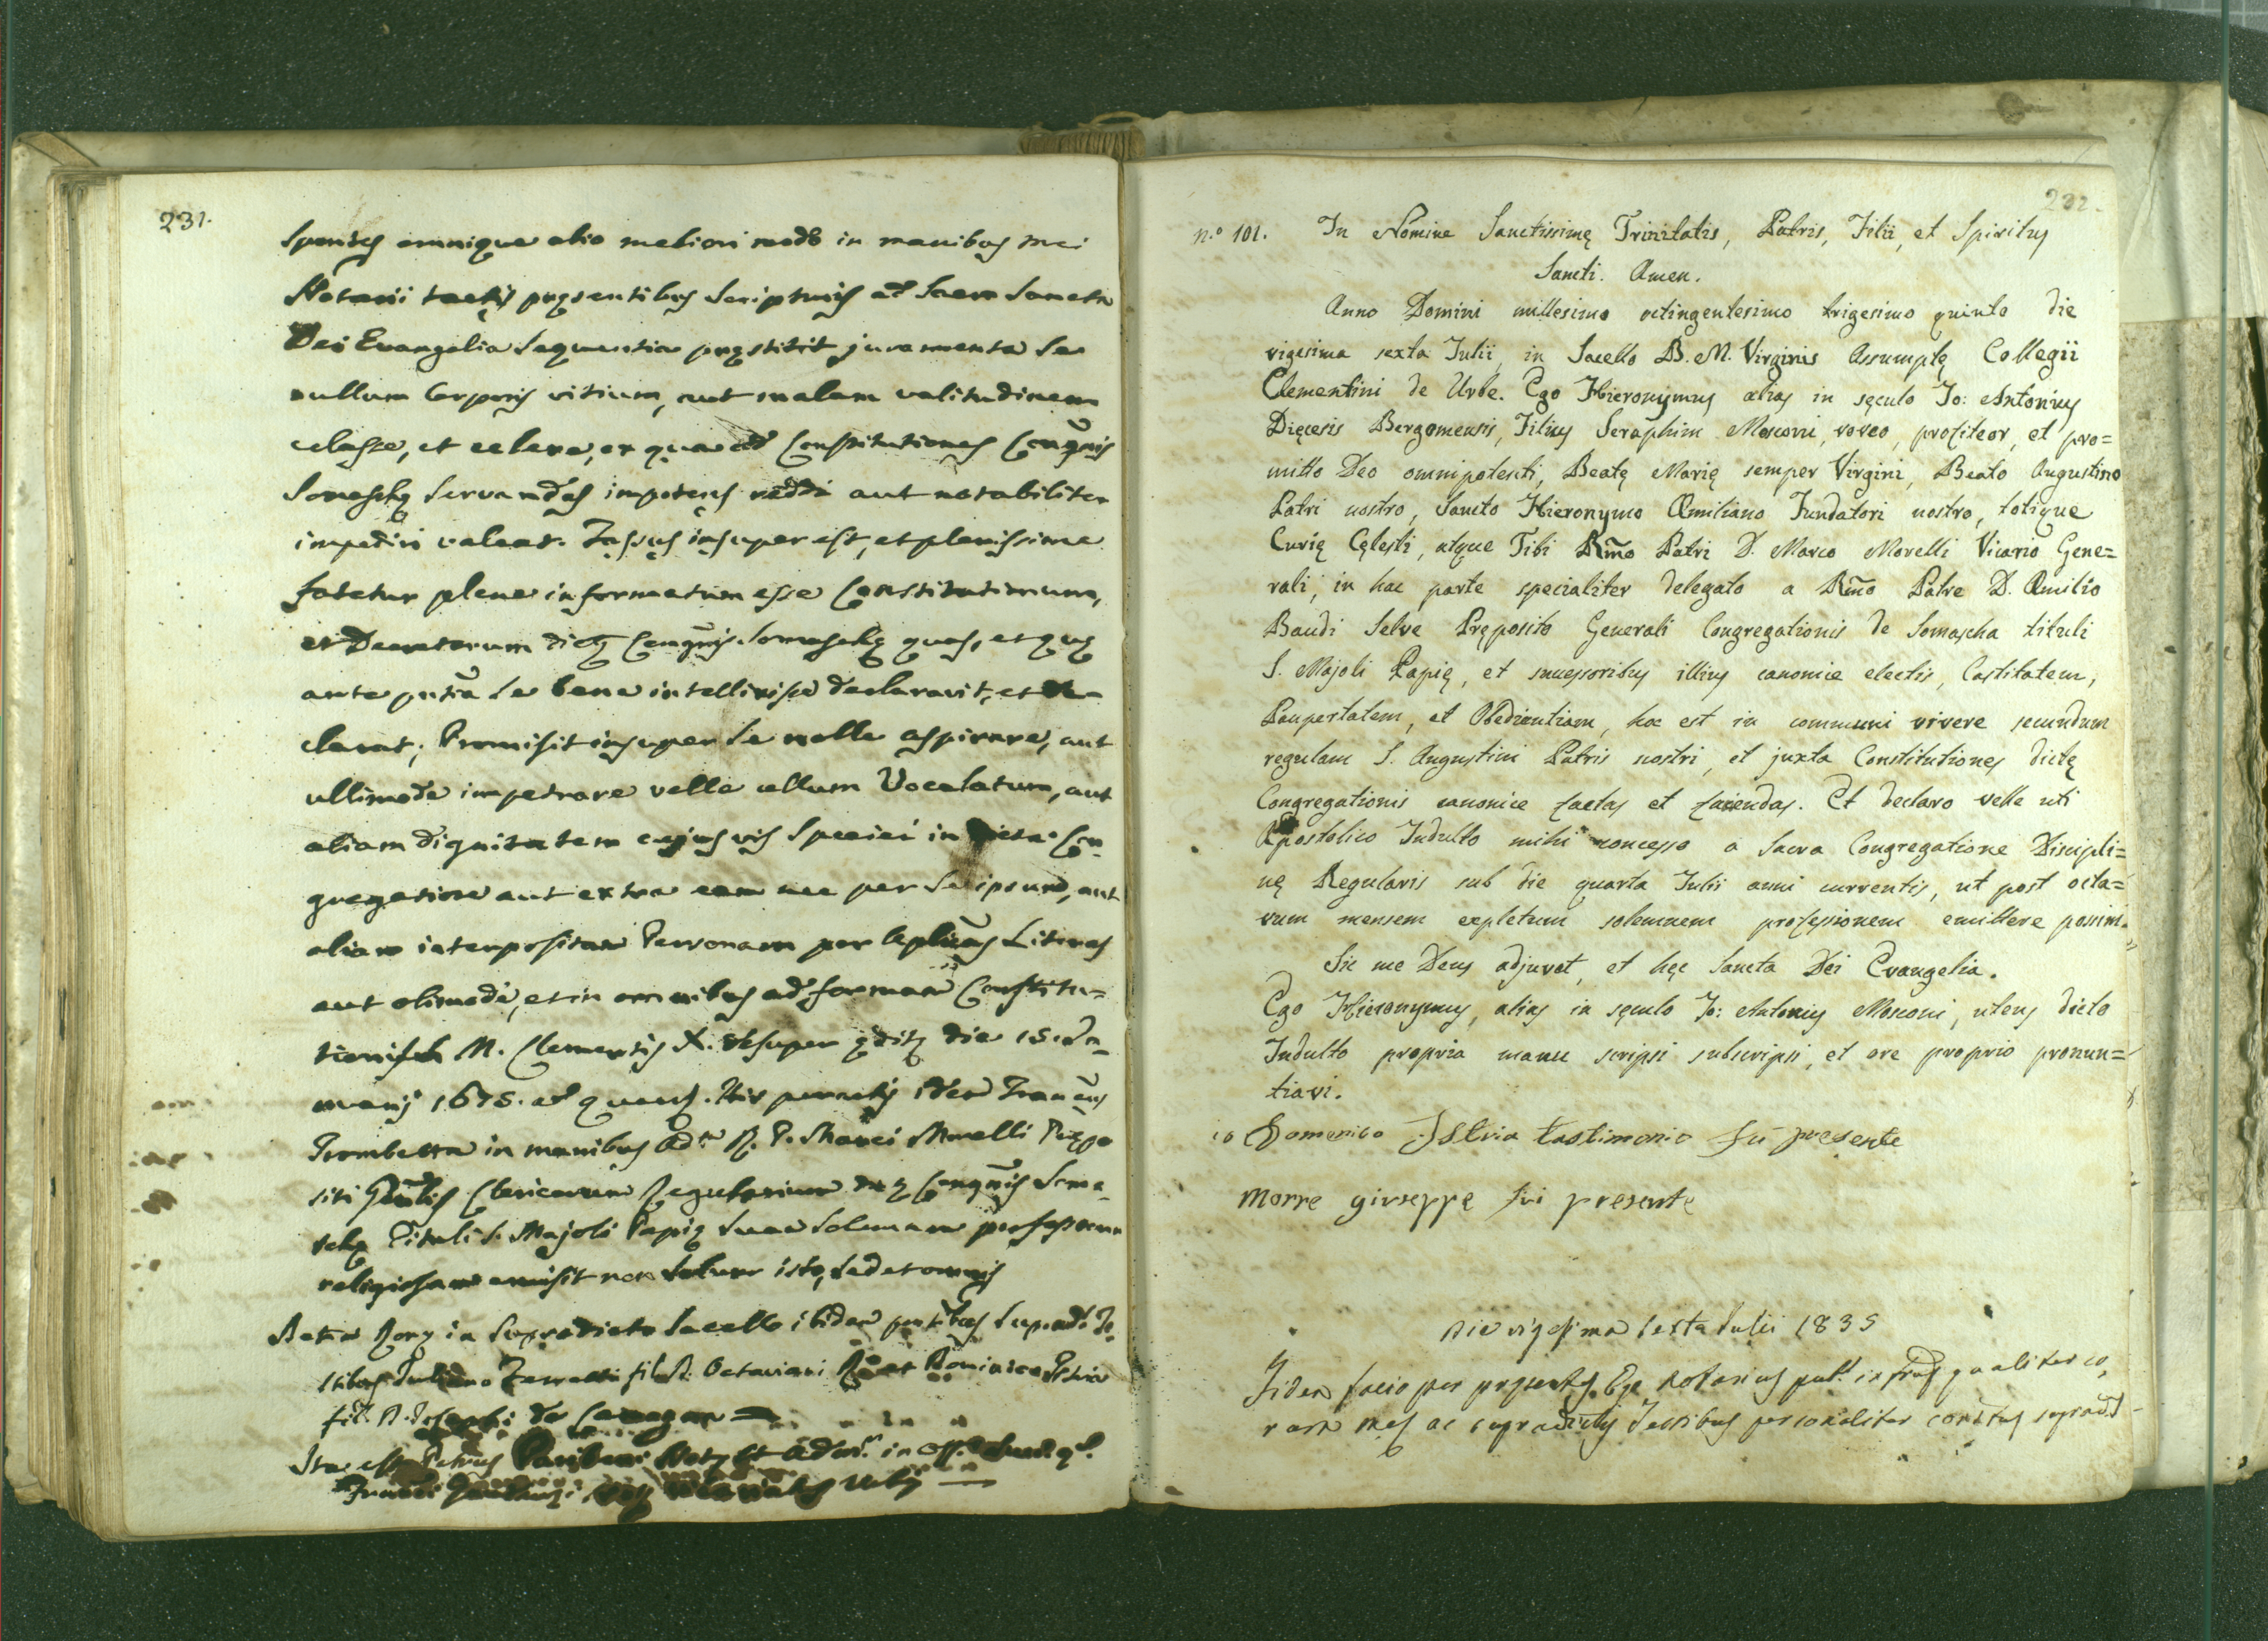 231.
Spontes omnique alio meliori modo in manibus mei
Notarii tactis pręsentibus Scripturis ad Sacra Sancta
Dei Evangelia Sequentia pręstitit juramenta Se
nullum Corporis vitium, aut malam valitudinem
celasse, et celare, ex qua ad Constitutiones Congñis
Somaschę Servandas impotens reddi aut notabiliter
impediri valeat. Jassus insuper est, et plenissime
fatetur plene informatum esse Constitutionum,
et Decretorum dictę Congñis Somaschę quas, et quę
ante pñtia Se bene intellixisse declaravit, et de
clarat; Promisit insuper Se nolle aspirare, aut
ullimode impetrare velle ullum Vocalatum, aut
aliam dignitatem cujusvis Speciei in dicta Con
gregatione aut extra eam nec per Se ipsum, aut
aliam interpositam Personam per Aplicas Literas
aut alimode, et in omnibus ad formam Constitu=
tionis M. Clementis X. desuper ędite die 15. Ja
nuarij 1675. ad quam. His peractis idem Francus
Trombetta in manibus Adm R. P. Marci Morelli Prępo
siti Gñalis Clericorum Regularium Congñis Soma
schę Tituli S. Majoli Papię Suam Solemnem professionem
religiosam emisit non Solum isto, sed et omnis
Actum Romę in Supradicto Sacello ibidem pñtibus Suprad. Te
stibus Juliano Ferretti fil. Octaviani et Dominico Istria
fil. Josephi de
Ita est Petrus
232.
n.º 101. In Nomine Sanctissimę Trinitatis, Patris, Filii, et Spiritus
Sancti. Amen.
Anno Domini millesimo octingentesimo trigesimo quinto die
vigesima sexta Julii, in Sacello B. M. Virginis Assumptę Collegii
Clementini de Urbe. Ego Hieronymus alias in sęculo Jo: Antonius
Dięcesis Bergomensis, Filius Seraphim Mosconi, voveo, profiteor, et pro=
mitto Deo omnipotenti, Beatę Marię semper Virgini, Beato Augustino
Patri nostro, Sancto Hieronymo Æmiliano Fundatori nostro, totique
Curię Cęlesti, atque Tibi Rm̃o Patri D. Marco Morelli Vicario Gene=
rali, in hac parte specialiter delegato a Rm̃o Patre D. Æmilio
Baudi Selve Pręposito Generali Congregationis de Somascha tituli
S. Majoli Papię, et successoribus illius canonice electis, Castitatem,
Paupertatem, et Obedientiam, hoc est in communi vivere secundum
regulam S. Augustini Patris nostri, et juxta Constitutiones dictę
Congregationis canonice factas et faciendas. Et declaro velle uti
Apostolico Indulto mihi concesso a Sacra Congregatione Discipli=
nę Regularis sub die quarta Julii anni currentis, ut post octa=
vum mensem expletum solemnem professionem emittere possim.
Sic me Deus adjuvet, et hęc Sancta Dei Evangelia.
Ego Hieronymus, alias in sęculo Jo: Antonius Mosconi, utens dicto
Indulto propria manu scripsi subscripsi, et ore proprio pronun=
tiavi.
io Domenico Istria tastimonio fui presente
Morre giuseppe fui presente
Die vigesima sexta Julii 1835
Fidem facio per pręsentes Ego Notarius pub. infrãs qualiter co,
ram me, ac supradictis Testibus personaliter constitus suprad